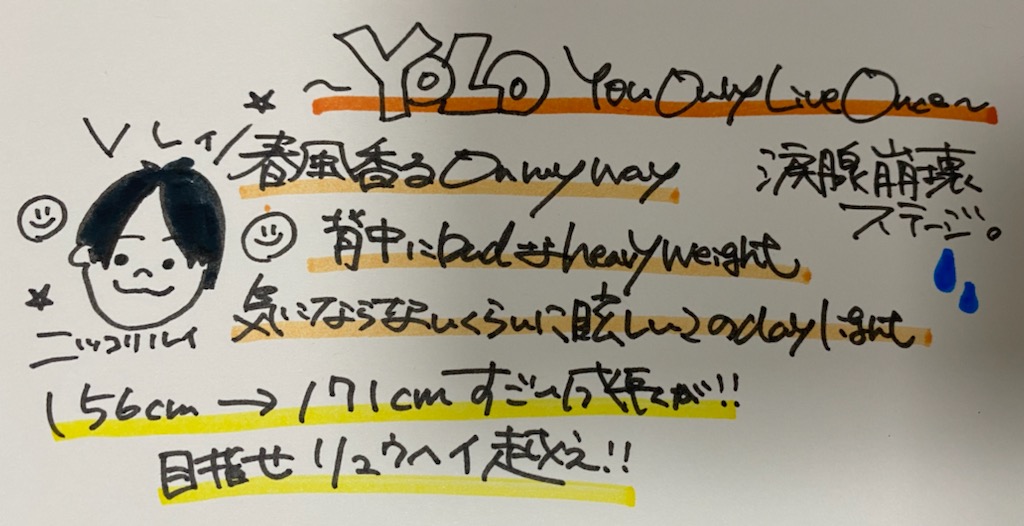 ～YOLO You Only Live Once～
\レイ/
春風香るOn my way
涙腺崩壊
ステージ。
背中にbudまたheavy weight
気にならないくらいに眩しいこのday light
ニッコリルイ
156cm→171cmすごい成長だが!!
目指せリュウヘイ越え!!